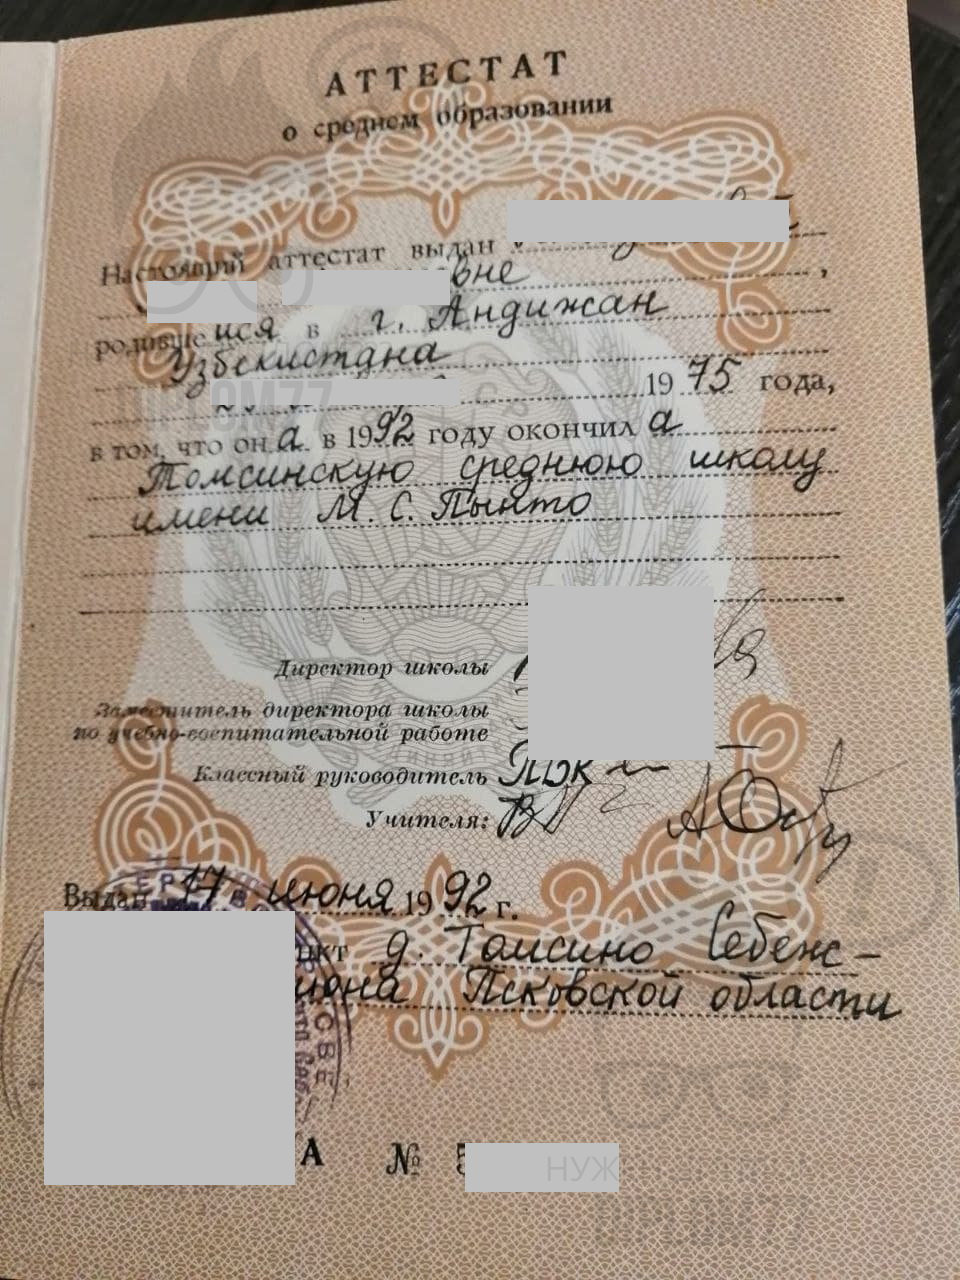 АТТЕСТАТ
о среднем образовании
Настоящий аттестат выдан
вне
родивше йся в г. Андижан
Узбекистана
1975 года,
в том, что он а в 1992 году окончил а
Томсинскую среднюю школу
имени М. С. Пынто
Директор школы
Заместитель директора школы
по учебно-воспитательной работе
Классный руководитель
Учителя:
Выдан 17 июня 1992 г.
нкт д. Томсино Себеж-
йона Псковской области
А № 5
НУЖ
DIPLOM77